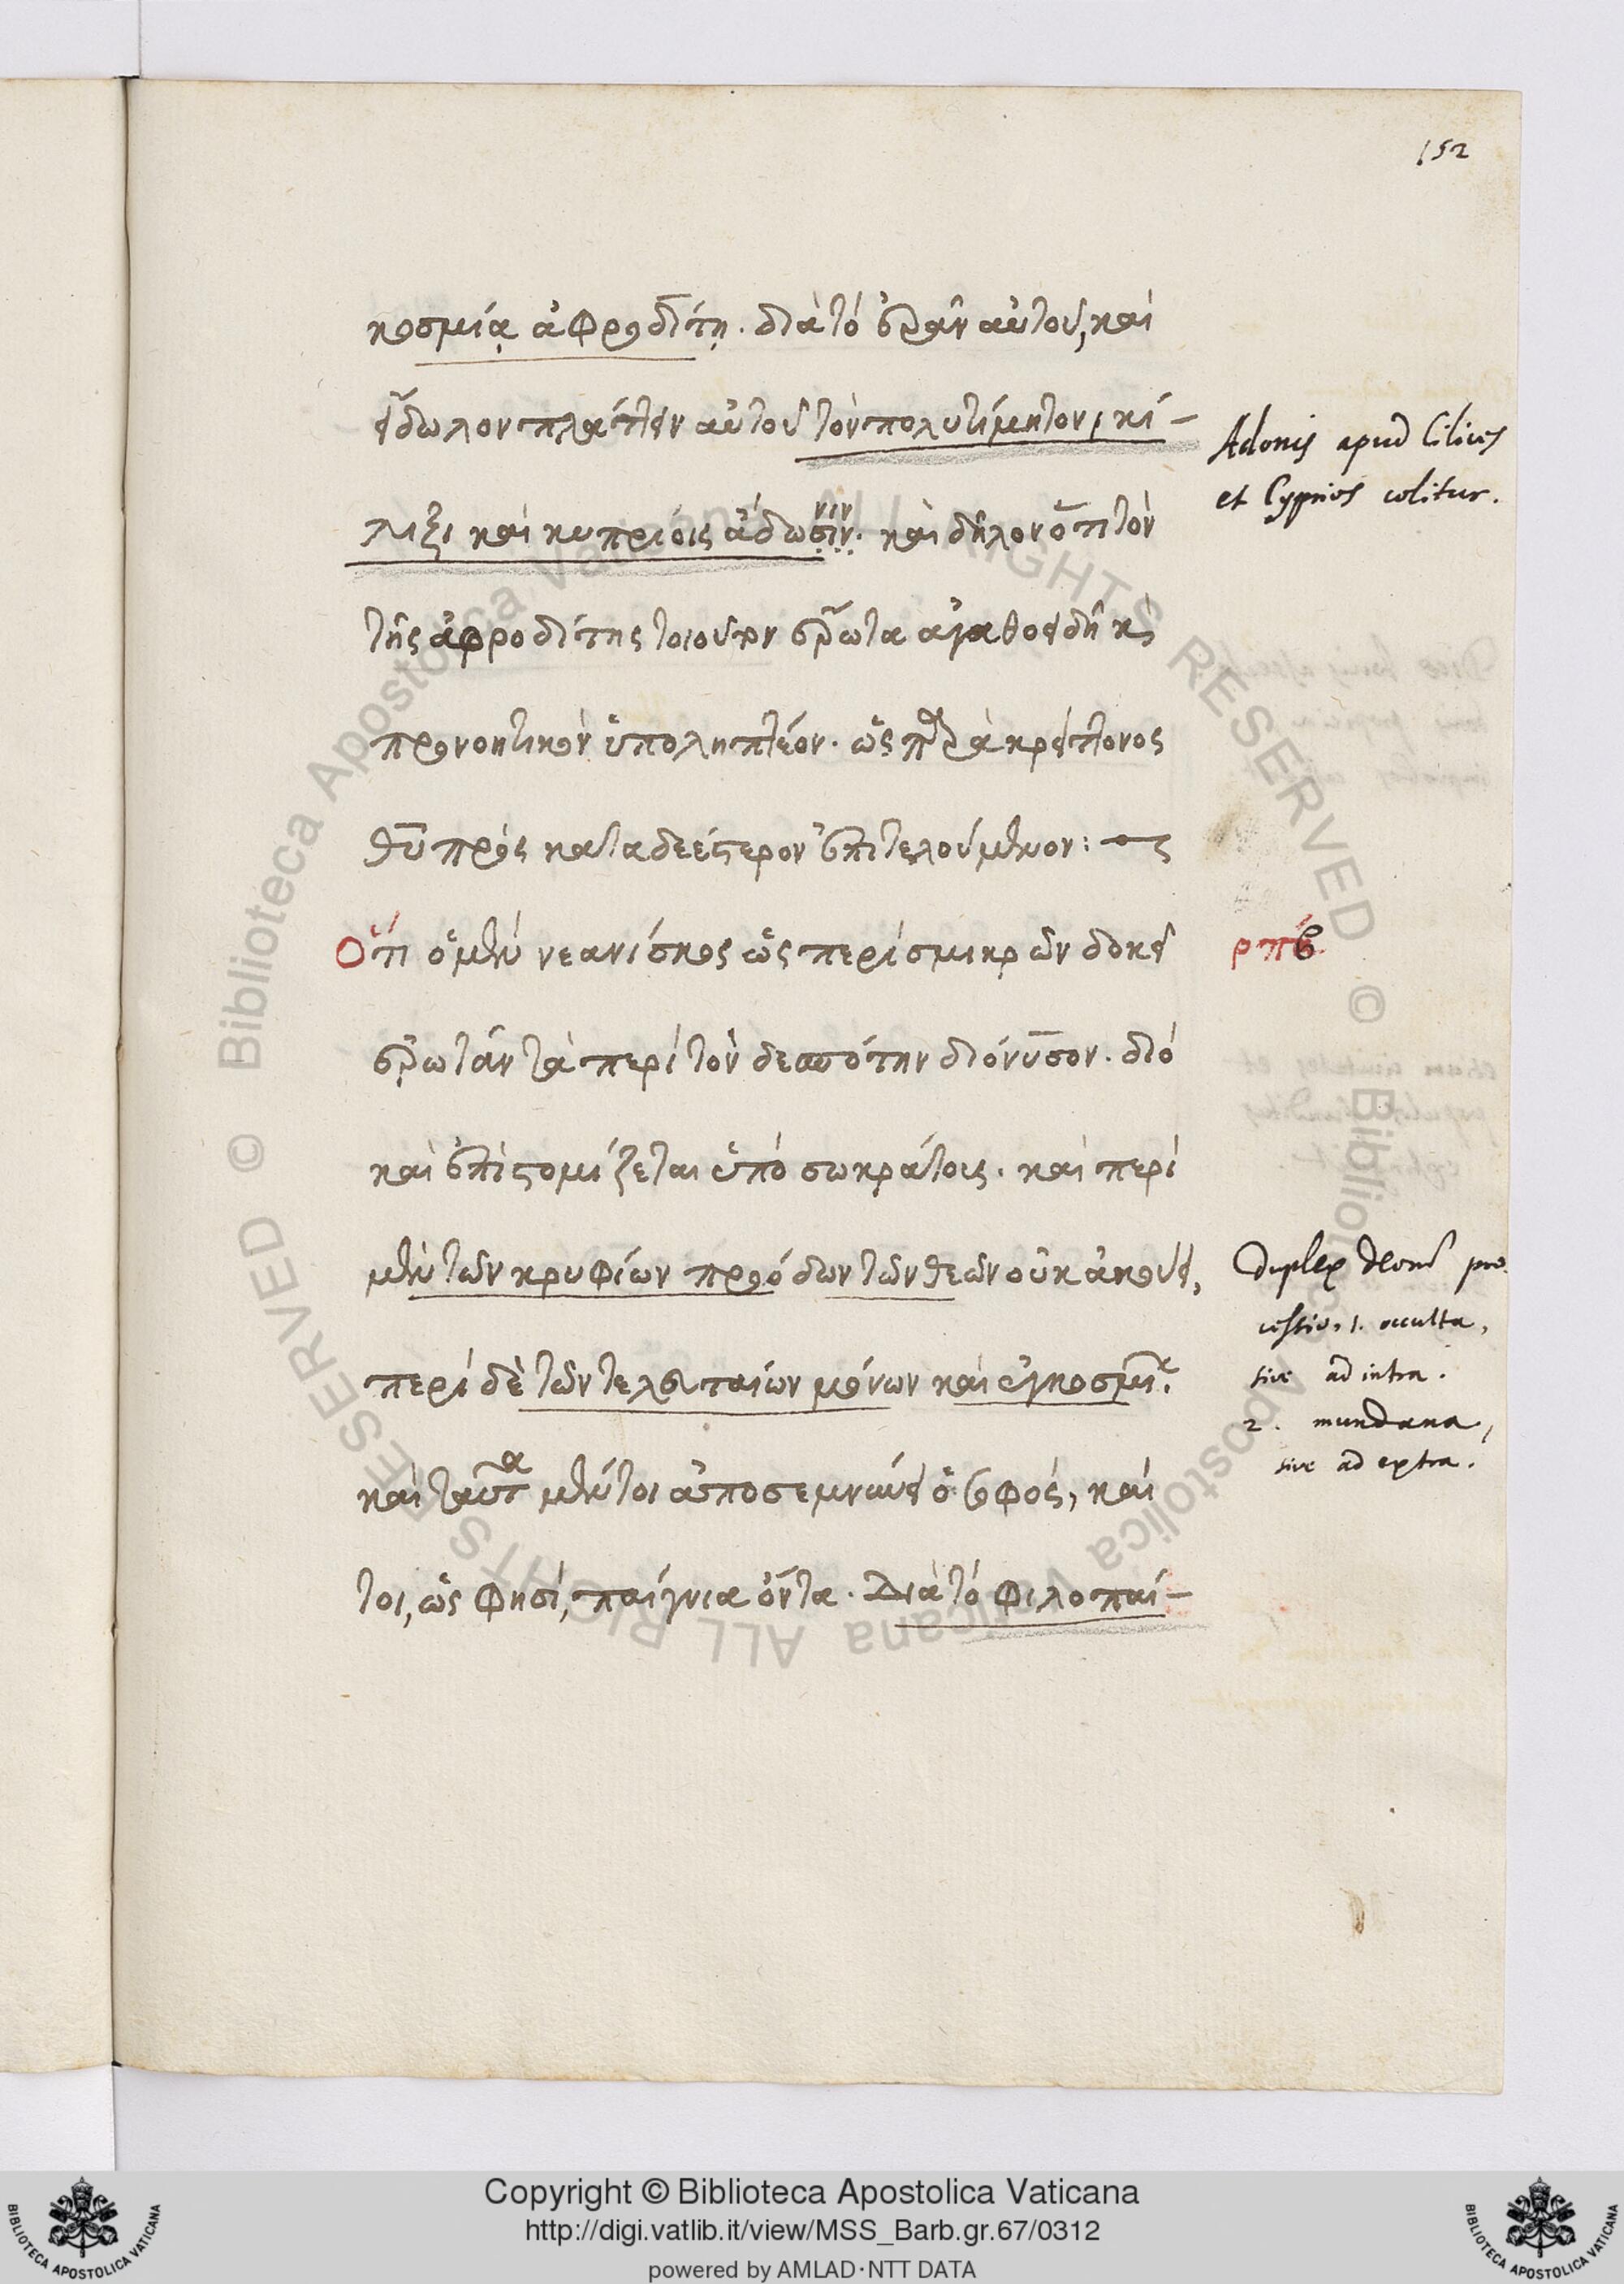 152
κοσμία ἀφροδίτη. διὰ τὸ ἐρᾶν αὐτοῦ, καὶ
εἴδωλον πλάττειν αὐτοῦ τὸν πολυτίμητον, κί-
Adonis apud Cilices
et Cyprios colitur.
νιν
λιξι καὶ κυπρίοις ἄδωσιν. καὶ δῆλον ὅτι τὸν
τῆς ἀφροδίτης τοιοῦτον ἔρωτα ἀγαθοειδῆ κ̀
προνοητικὸν ὑποληπτέον. ὡς παρὰ κρείττονος
θ͞υ πρὸς καταδεέστερον ἐπιτελούμενον:
Ὅτι ὁ μὲν νεανίσκος ὡς περὶ σμικρῶν δοκεῖ
ρπβ
ἐρωτᾶν τὰ περὶ τὸν δεσπότην διόνυσον. διὸ
καὶ ἐπιστομίζεται ὑπὸ σωκράτους. καὶ περὶ
μὲν τῶν κρυφίων προόδων τῶν θεῶν οὐκ ἀκούει,
Duplex deorum pro-
cessio, 1. occulta,
περὶ δὲ τῶν τελευταίων μόνων καὶ ἐγκοσμί.
sive ad intra.
2. mundana,
sive ad extra.
καὶ ταῦτα μέντοι ἀποσεμνύνει ὁ σοφός, καί
τοι, ὥς φησί, παίγνια ὄντα. Διὰ τὸ φιλοπαί-
Copyright © Biblioteca Apostolica Vaticana
http://digi.vatlib.it/view/MSS_Barb.gr.67/0312
powered by AMLAD·NTT DATA
BIBLIOTECA APOSTOLICA VATICANA
BIBLIOTECA APOSTOLICA VATICANA
© Biblioteca Apostolica Vaticana ALL RIGHTS RESERVED
© Biblioteca Apostolica Vaticana ALL RIGHTS RESERVED